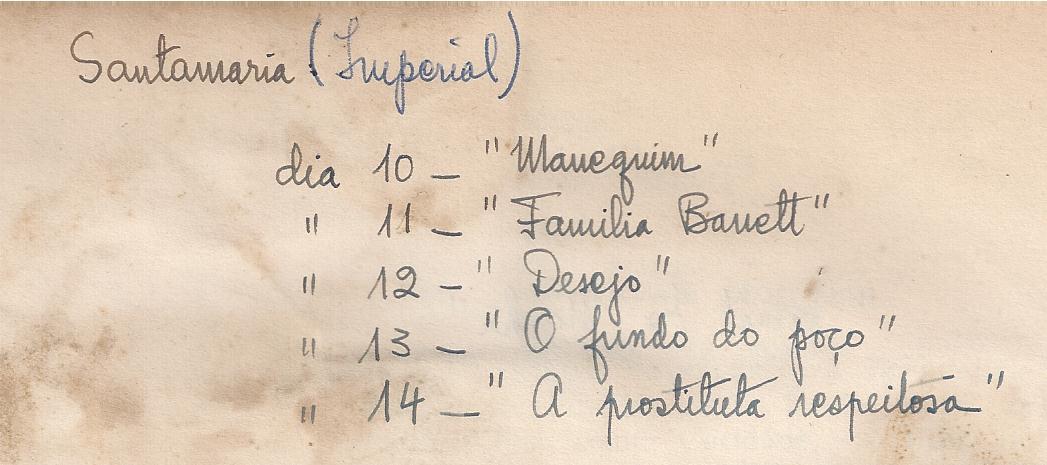 Santamaria (Imperial)
dia 10 – "Manequim"
" 11 – "Familia Barrett"
" 12 – "Desejo"
" 13 – "O fundo do poço"
" 14 – "A prostituta respeitosa"